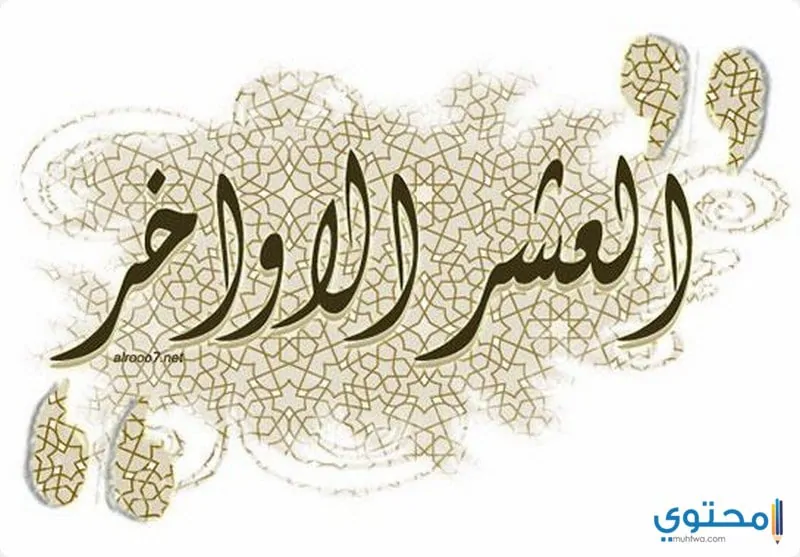 العشر الاواخر
alrooo7.net
محتوي
muhtwa.com